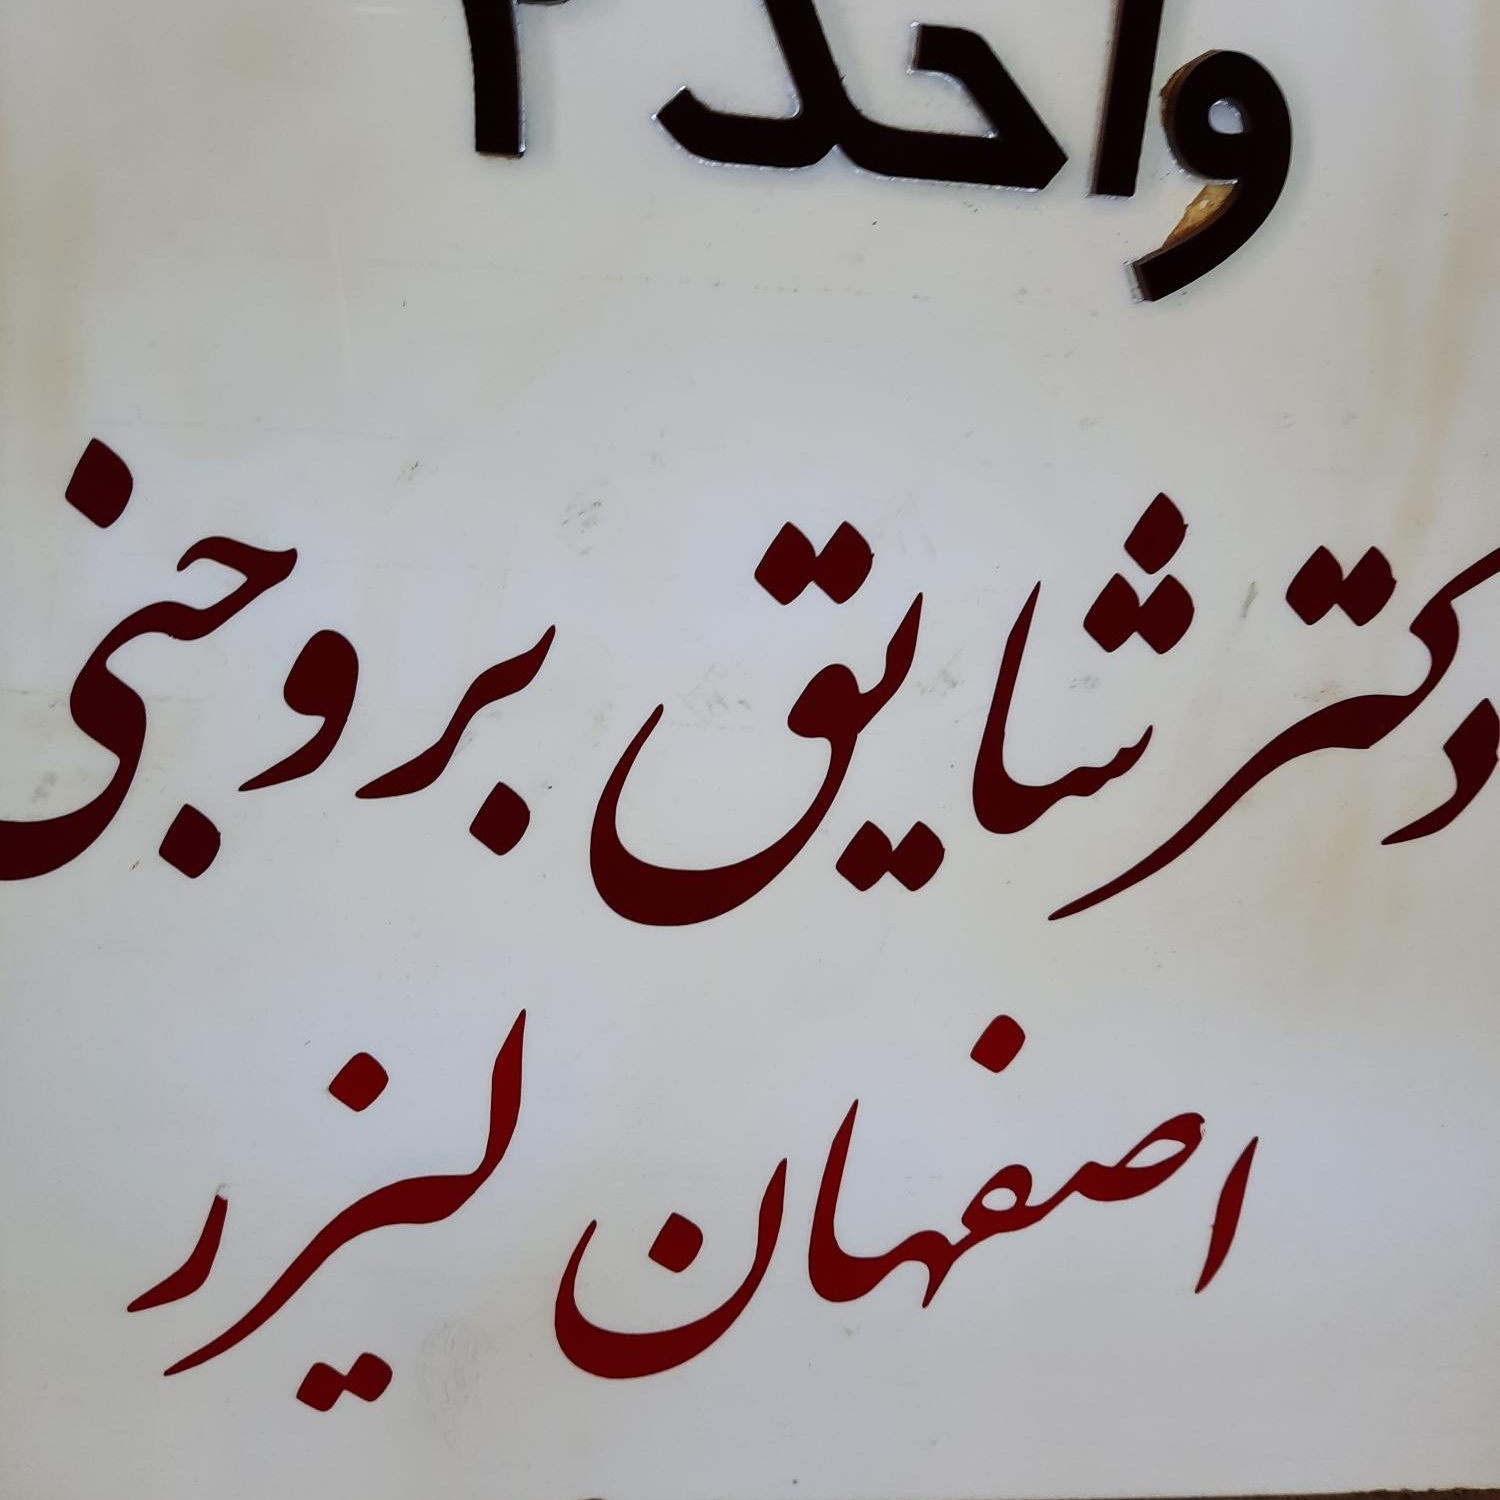 واحد
دکتر شایق بروجنی
اصفهان لیزر